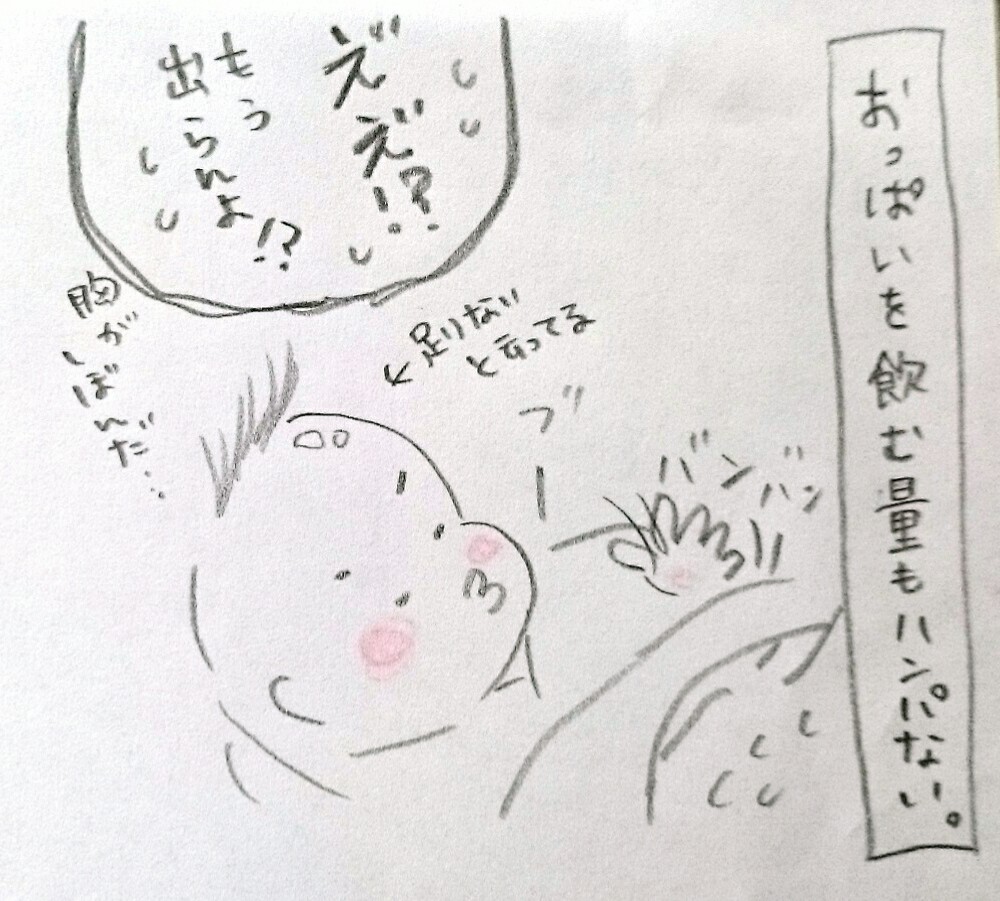 おっぱいを飲む量もハンパない。
え゛
え゛!?
もう
出られよ!?
足りない
と言ってる
ブー
バンバン
胸が
しぼんだ…